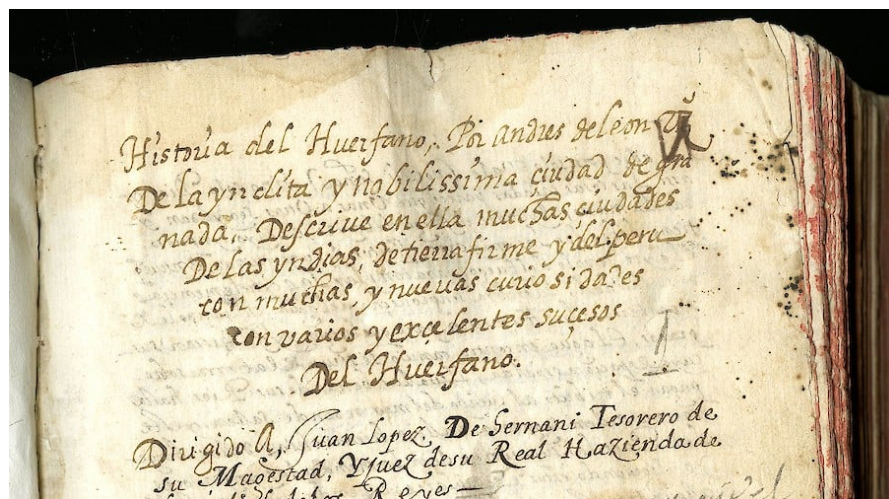 Historia del Huerfano, Por andres deleon
De la ynclita y nobilissima ciudad de gra
nada, Descrive en ella muchas çiudades
De las yndias, de tierra firme y del peru
con muchas, y nuevas curiosidades
con varios y excelentes suçesos
Del Huerfano.
Dirigido A, Juan Lopez De hernani Tesorero de
su Magestad, Y Juez de su Real Hazienda de
Reyes